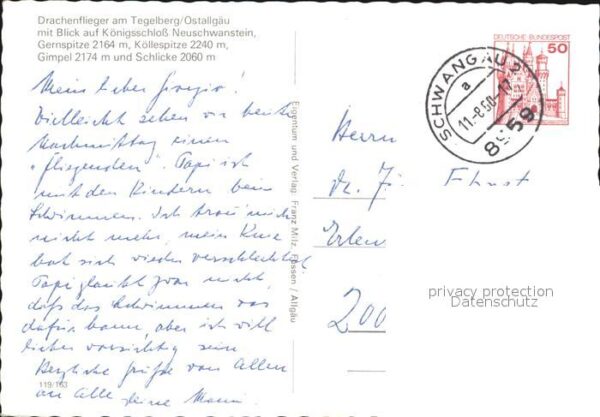 Drachenflieger am Tegelberg/Ostallgäu
mit Blick auf Königsschloß Neuschwanstein,
Gernspitze 2164 m, Köllespitze 2240 m,
Gimpel 2174 m und Schlicke 2060 m
Mein lieber
Vielleicht sehen wir heute
Nachmittag einen
"fliegenden". Papi ist
mit den Kindern beim
Schwimmen. Ich trau' mich
nicht mehr, mein Knie
hat sich wieder verschlechtert.
Papi glaubt zwar nicht,
daß das Schwimmen was
dafür kann, aber ich will
lieber vorsichtig sein
Herzliche Grüße von Allen
an Alle Deine Mami.
119/163
Eigentum und Verlag: Franz Milz, Füssen / Allgäu
DEUTSCHE BUNDESPOST
50
SCHWANGAU 2
a
8959
Herrn
Dr.
Erlen
200
privacy protection
Datenschutz